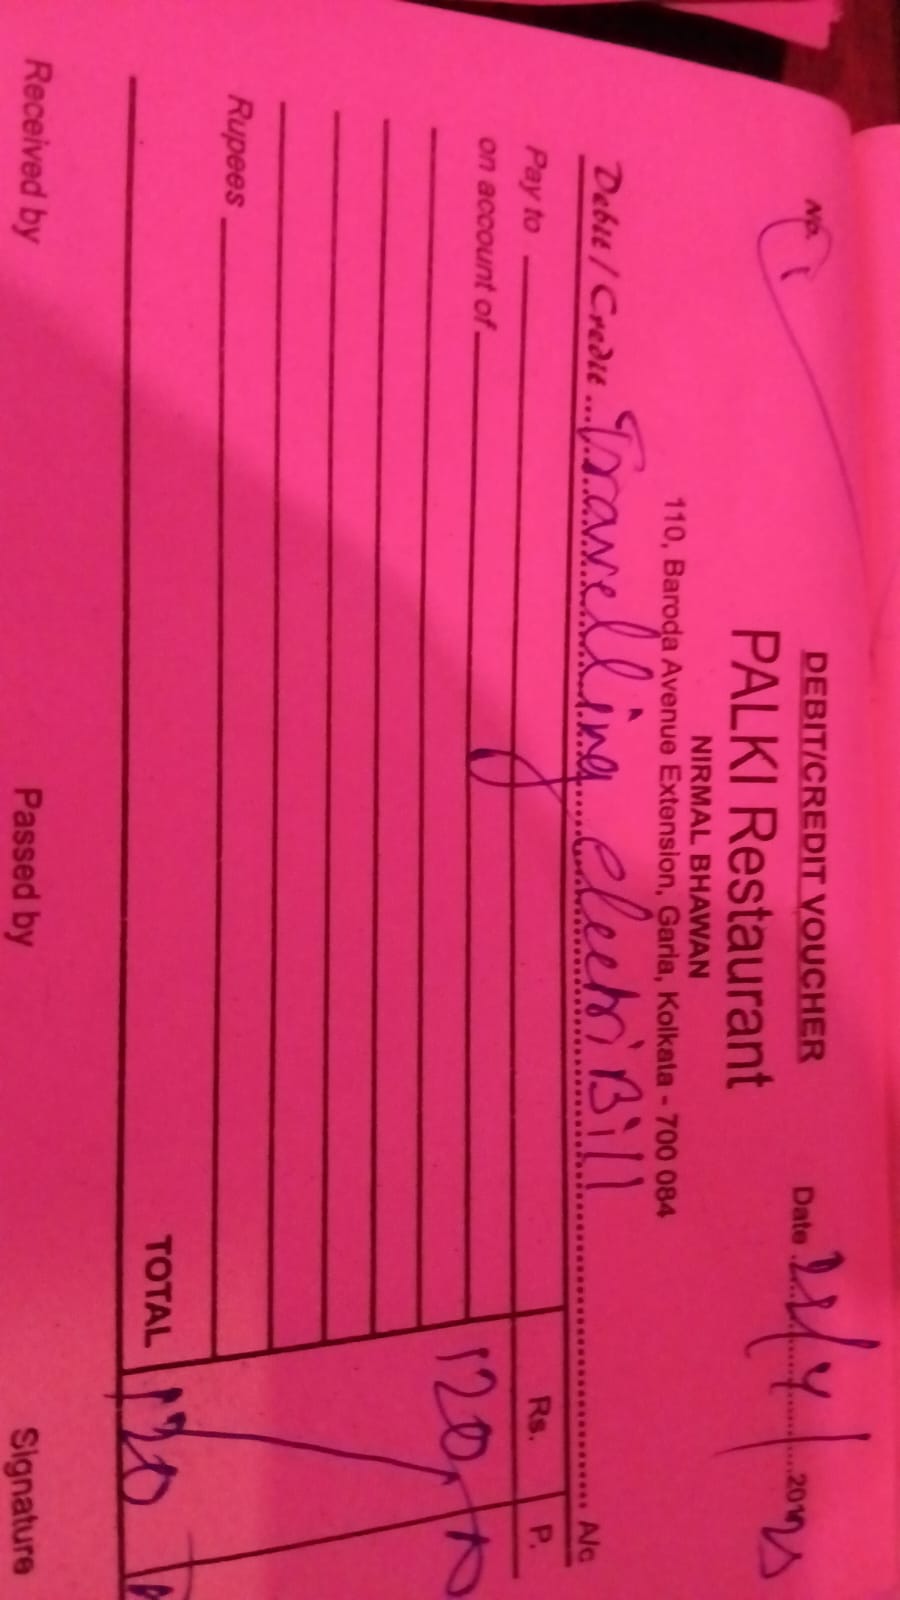 DEBIT/CREDIT VOUCHER
No. 1
PALKI Restaurant
Date
NIRMAL BHAWAN
110, Baroda Avenue Extension, Garia, Kolkata - 700 084
Debit / Credit Travelling Bill A/c
Pay to Rs. P.
on account of 120
Rupees
TOTAL 120
Received by Passed by Signature